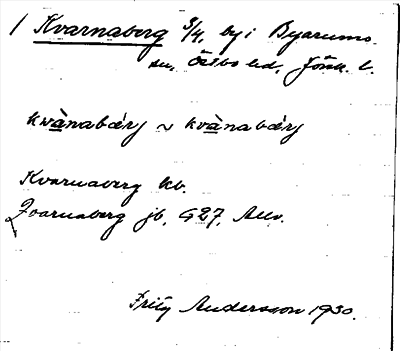 / Kvarnaberg 3/4, by i Byarums
sn, Östbo hd, Jönk. l.
kwànabærj ~ kvànabærj
Kvarnaberg kb.
Qvarnaberg jb, 927,
Fritz Andersson 1930.